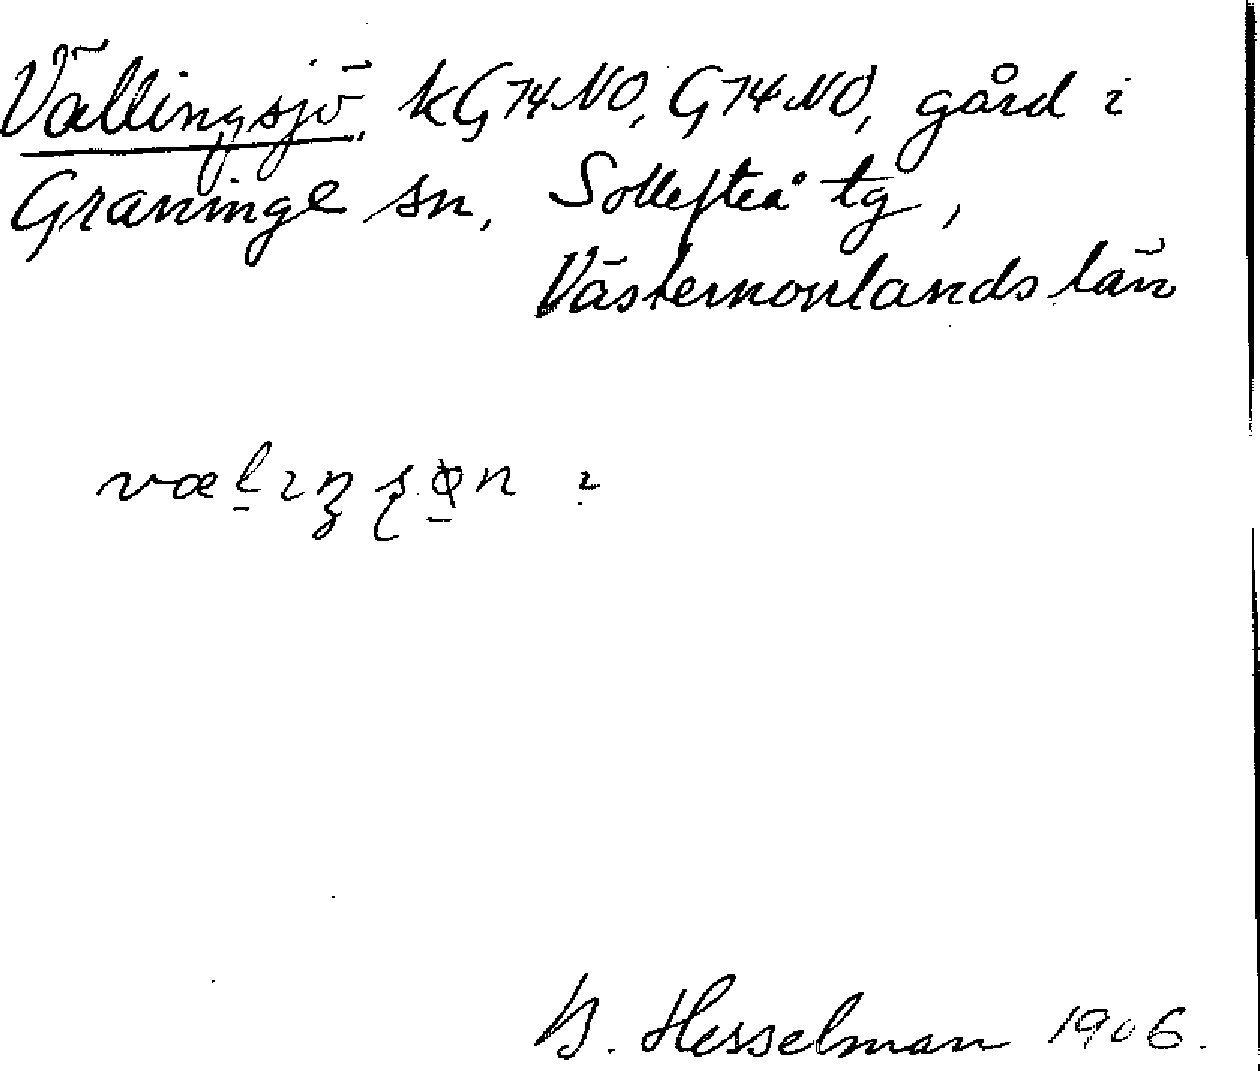 Vällingsjö, kG74NO, G74NO, gård i
Graninge sn, Sollefteå tg,
Västernorrlands län
væl̲ıŋʂø̲n i
B. Hesselman 1906.